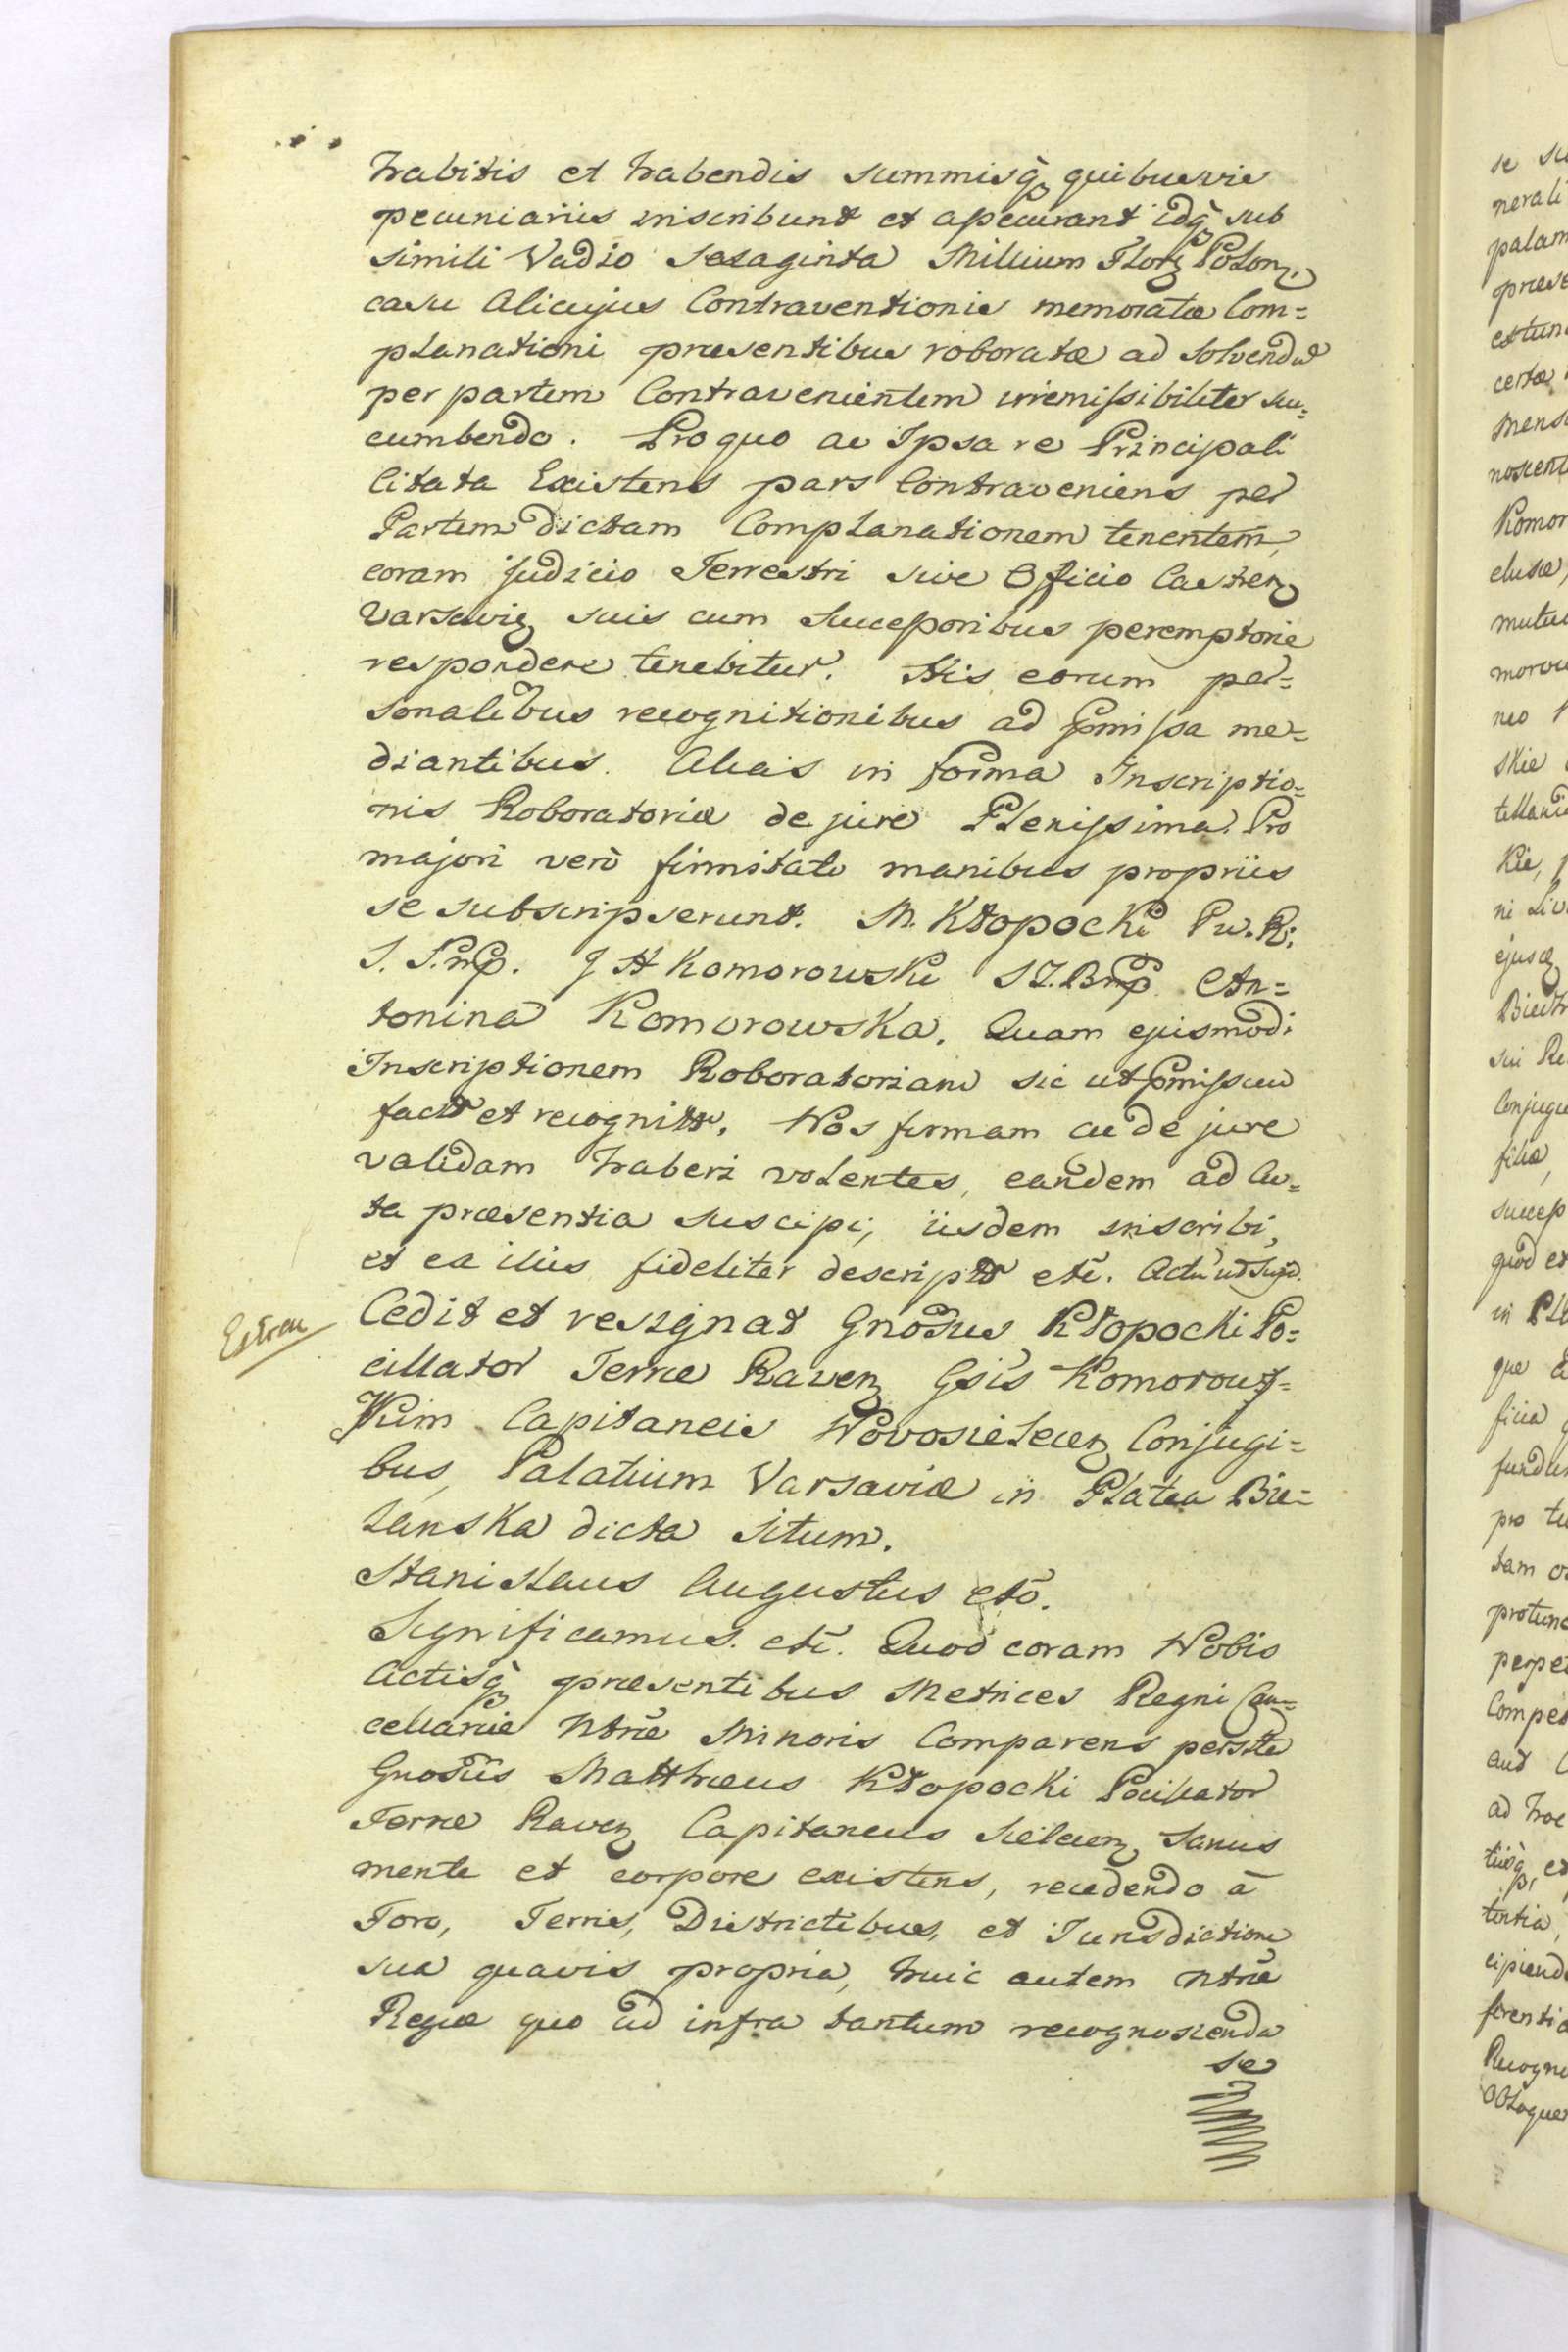 habitis et habendis summisq́ʒ quibusvis
pecuniariis inscribunt et assecurant idq́ʒ sub
simili Vadio Sexaginta Millium Florʒ Polonʒ
casu alicujus Contraventionis memoratæ Com=
planationi præsentibus roboratæ ad solvend
per partem Contravenientem irremissibiliter suc=
cumbendo. Pro quo ac Ipsa re Principali
Citata Existens pars Contraveniens per
Partem dictam Complanationem tenentem,
coram Judicio Terrestri sive Officio Castrenʒ
Varsavieʒ suis cum Successoribus peremptorie
respondere tenebitur. His eorum per=
sonalibus recognitionibus ad pmissa me=
diantibus. Alias in forma Inscriptio=
nis Roboratoriæ de jure Plenissima. Pro
majori verò firmitate manibus propriis
se subscripserunt. M. Kłopocki Pw. R.
S. S. mp. J H Komorowski S.Z.B mp. An=
tonina Komorowska. Quam ejusmodi
Inscriptionem Roboratoriam sic ut pmissum
fact et recognitt, Nos firmam ac de jure
validam haberi volentes, eandem ad Ac=
ta præsentia suscipi, iisdem inscribi,
et ex illis fideliter descript etc̃. Actũ ut supr.
Extrau
Cedit et resignat Gnõsus Kłopocki Po=
cillator Terræ Ravenʒ Gsis Komorows=
kim Capitaneis Novosielecenʒ Conjugi=
bus, Palatium Varsaviæ in Platea Bie=
lanska dicta situm.
Stanislaus Augustus etc̃.
Significamus. etc̃. Quod coram Nobis
Actisq́ʒ præsentibus Metrices Regni Can=
cellariæ Ntræ Minoris Comparens persñte
Gnosus Matthæus Kłopocki Pocillator
Terræ Ravenʒ Capitaneus Sielcenʒ Sanus
mente et corpore existens, recedendo à
Foro, Terris, Districtibus, et Jurisdictione
sua quavis propria, huic autem Ntræ
Regiæ quo ad infra tantum recognoscenda
se